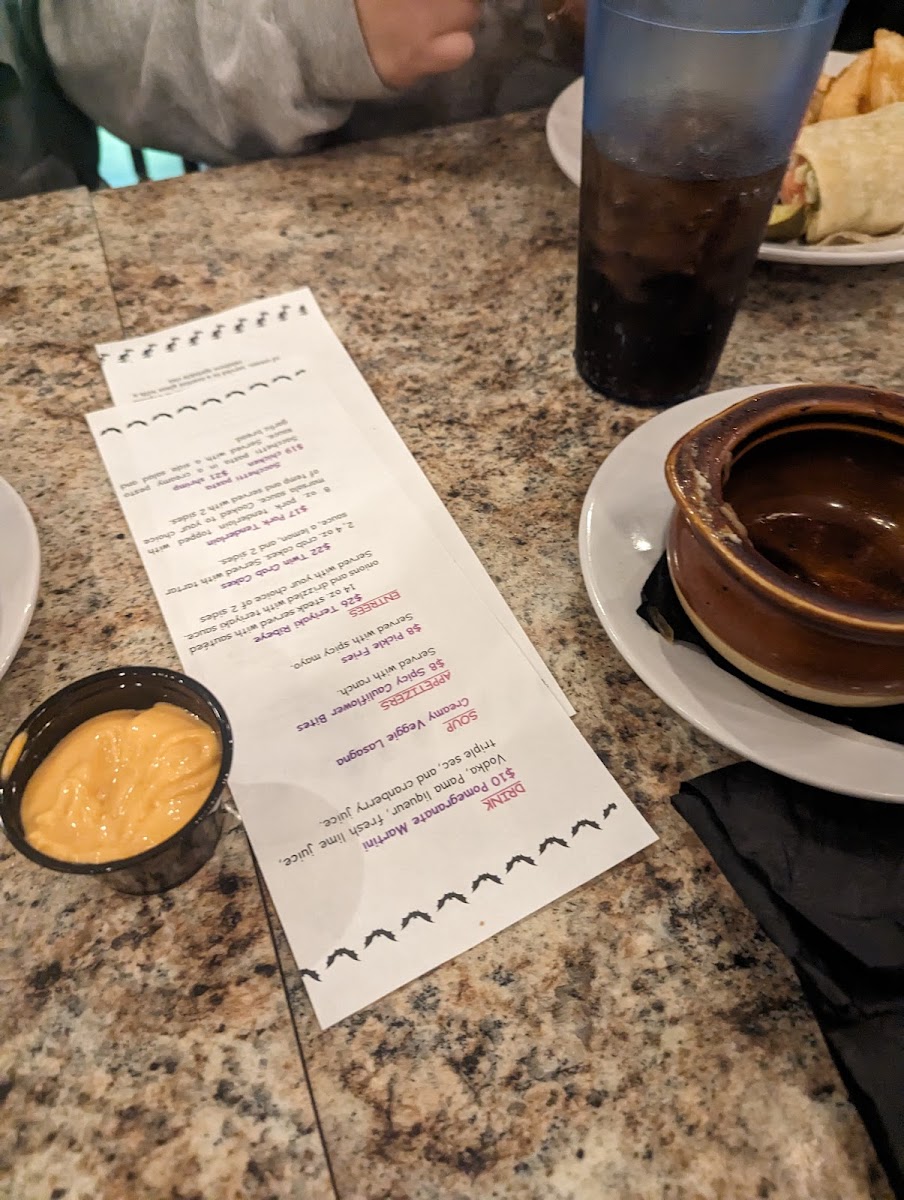 DRINK
$10 Pomegranate Martini
Vodka, Pama liqueur, fresh lime juice,
triple sec, and cranberry juice.
SOUP
Creamy Veggie Lasagna
APPETIZERS
$8 Spicy Cauliflower Bites
Served with ranch.
$8 Pickle Fries
Served with spicy mayo.
ENTREES
$26 Teriyaki Ribeye
14 oz steak served with sautéed
onions and drizzled with teriyaki sauce.
Served with your choice of 2 sides
$22 Twin Crab Cakes
2, 4 oz crab cakes. Served with tartar
sauce, a lemon, and 2 sides.
$17 Pork Tenderloin
8 oz pork tenderloin topped with
marsala sauce. Cooked to your choice
of temp and served with 2 sides.
Sacchetti pasta
$19 chicken $21 shrimp
Sacchetti pasta in a creamy pesto
sauce. Served with a side salad and
garlic bread